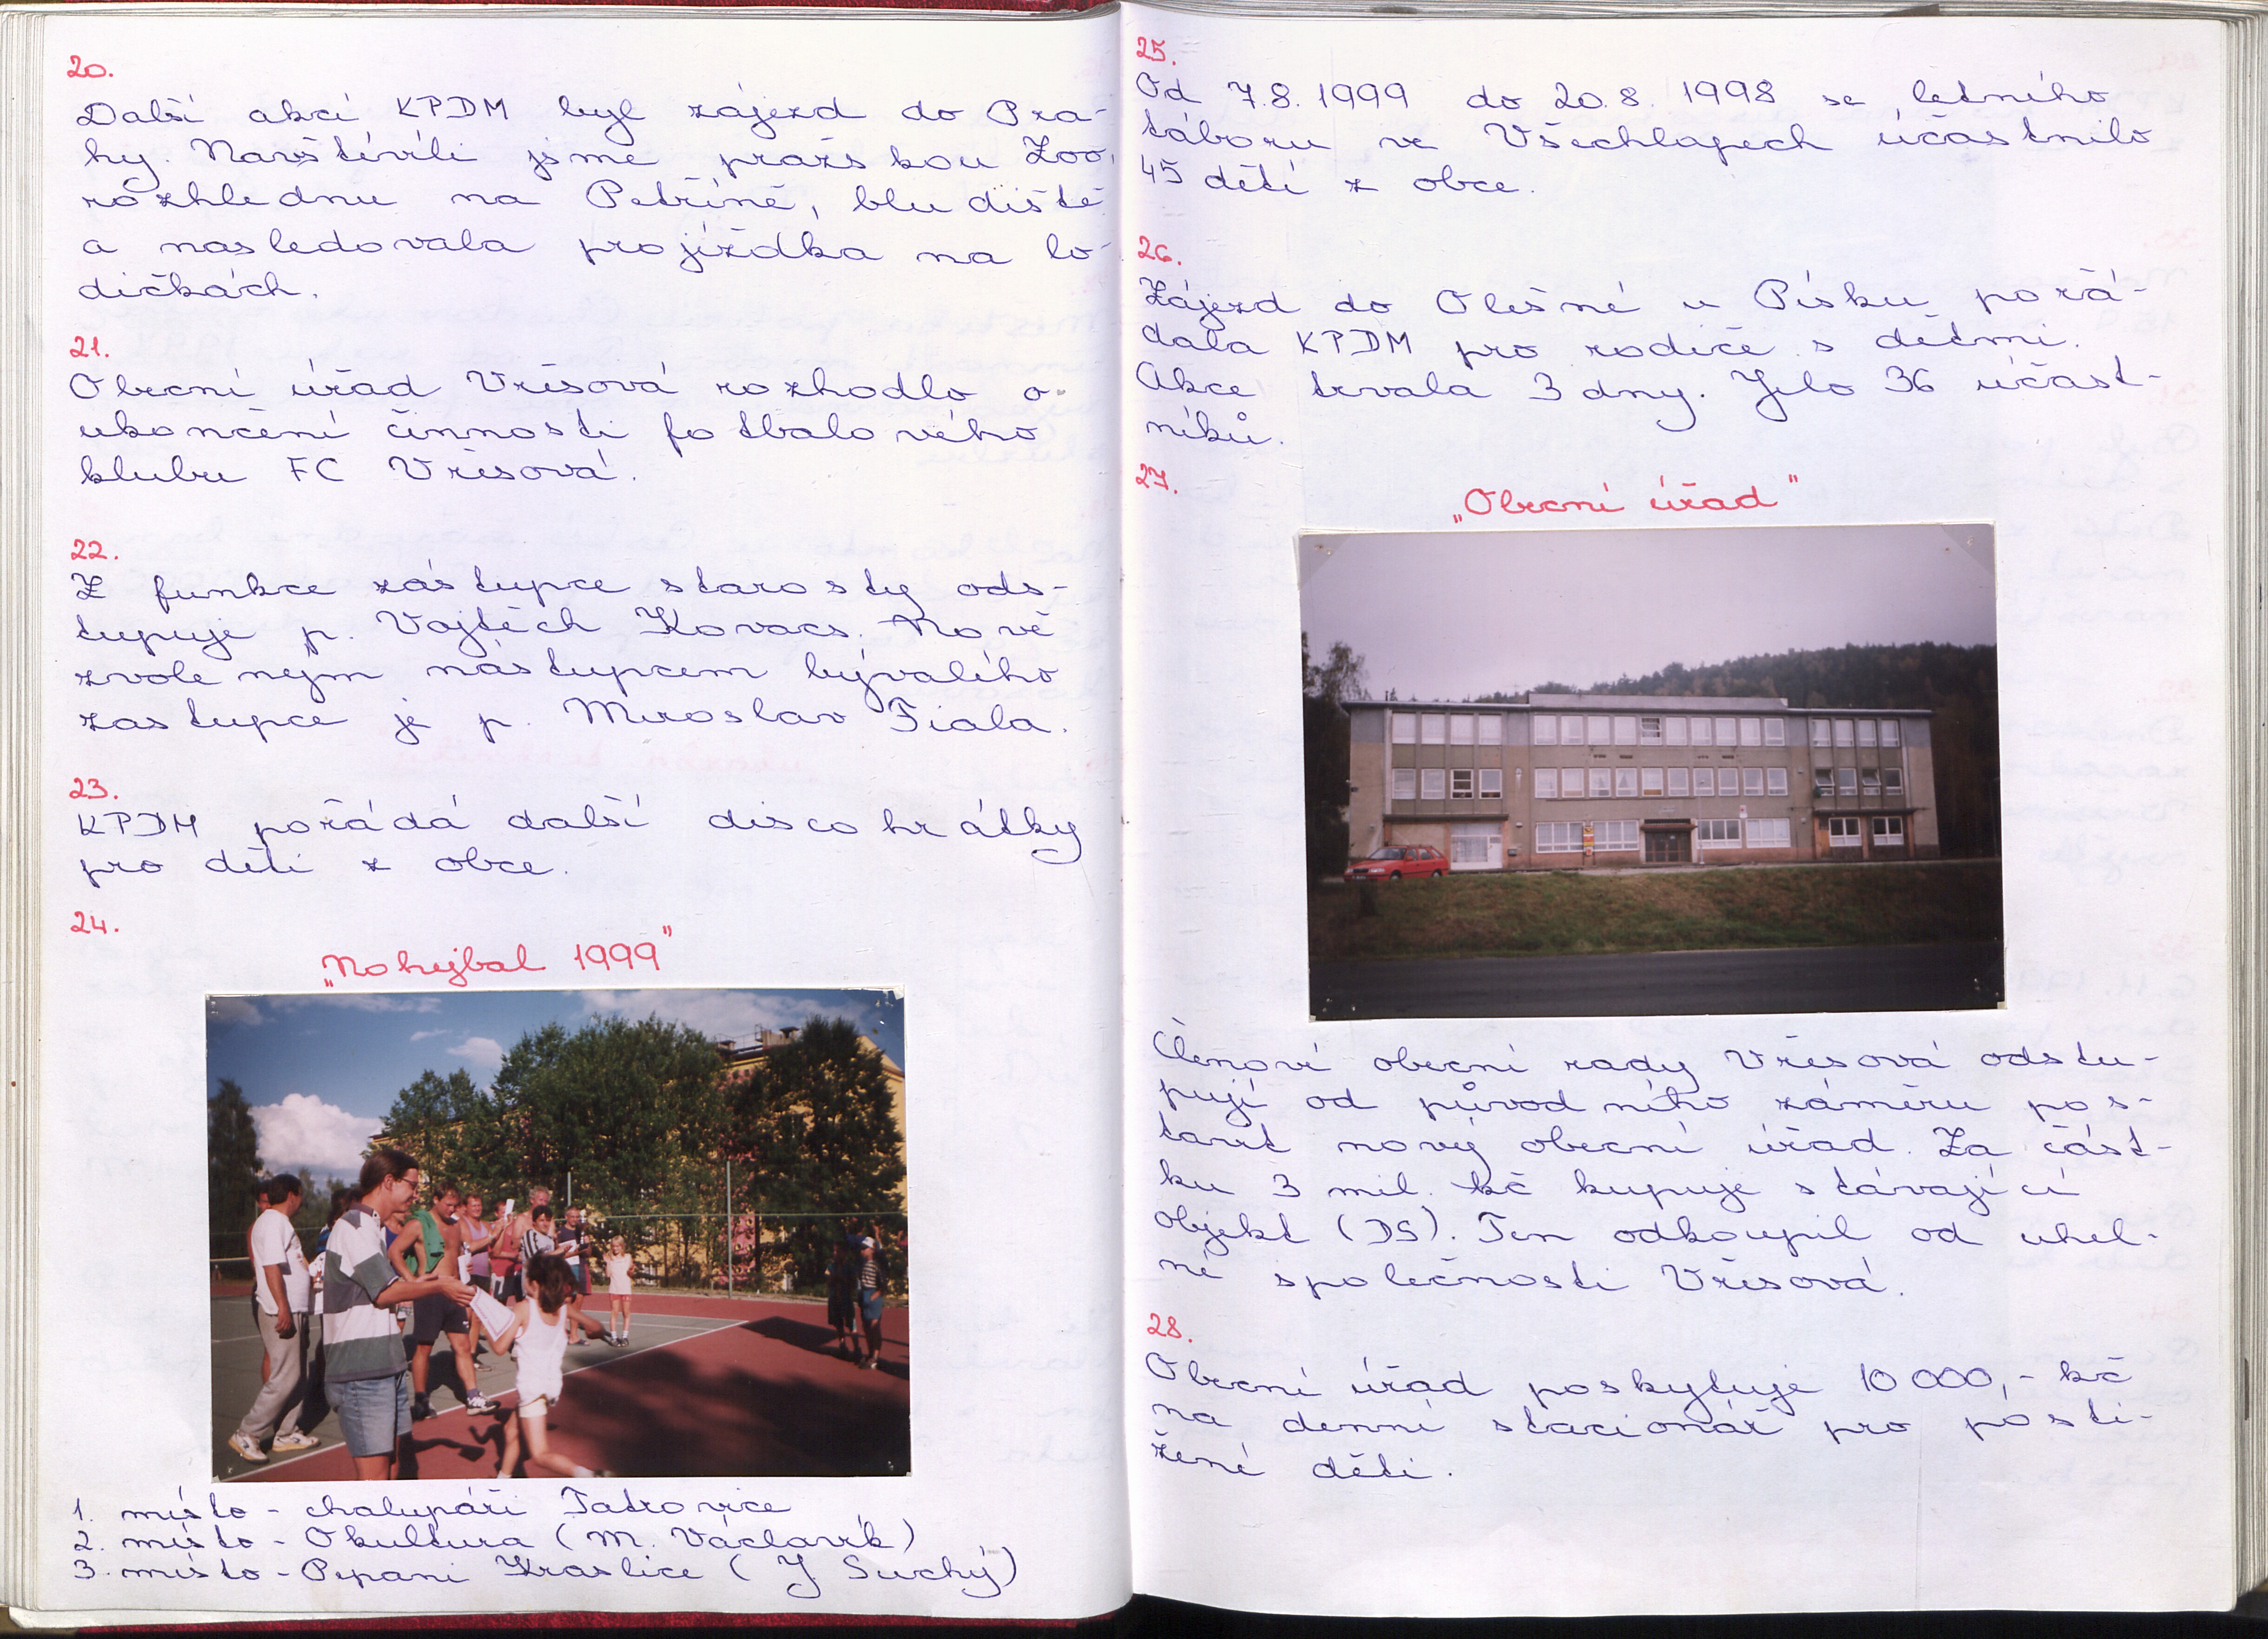 20.
Další akcí KPDM byl zájezd do Pra-
hy. Navštívili jsme pražskou Zoo,
rozhlednu na Petříně, bludiště
a nasledovala projížďka na lo-
dičkách.
21.
Obecní úřad Vřesová rozhodlo o
ukončení činnosti fotbalového
klubu FC Vřesová.
22.
Z funkce zástupce starosty ods-
tupuje p. Vojtěch Kovacs. Nově
zvoleným nástupcem bývalého
zastupce je p. Miroslav Fiala.
23.
KPDM pořádá další discohrátky
pro děti z obce.
24.
„Nohejbal 1999"
1. místo - chalupáři Tatrovice
2. místo - Okultura (M. Václavík)
3. místo - Pepani Kraslice (J Suchý)
25.
Od 7.8.1999 do 20.8. 1998 se letního
táboru ve Všechlapech účastnilo
45 dětí z obce.
26.
Zájezd do Olešné u Písku pořá-
dala KPDM pro rodiče s dětmi.
Akce trvala 3 dny. Jelo 36 účast-
níků.
27.
„Obecní úřad"
Členové obecní rady Vřesová odstu-
pují od původního záměru pos-
tavit nový obecní úřad. Za část-
ku 3 mil. kč kupuje stávající
objekt (DS). Ten odkoupil od uhel-
né společnosti Vřesová.
28.
Obecní úřad poskytuje 10 000,- kč
na denní stacionář pro posti-
žené děti.